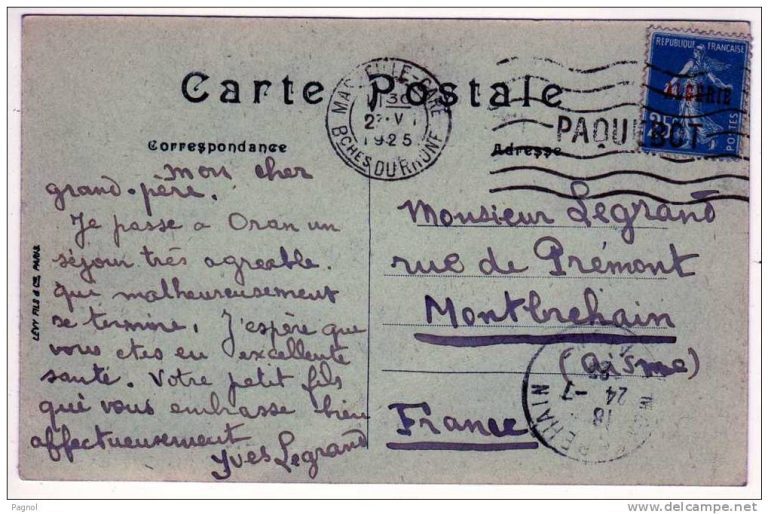 Carte Postale
Correspondance
mon cher
grand-père.
Je passe a Oran un
séjour très agreable.
qui malheureusement
se termine, J'espère que
vous etes en excellente
santé. Votre petit fils
qui vous embrasse bien
affectueusement
Yves Legrand
LEVY FILS & Cie, PARIS
MARSEILLE-GARE
30
1925
BCHES DU RHÔNE
PAQUEBOT
REPUBLIQUE FRANÇAISE
ALGERIE
25
POSTES
Adresse
Monsieur Legrand
rue de Prémont
Montbrehain
(Aisne)
France
18
24-7
25
Pagnol
delcampe.net